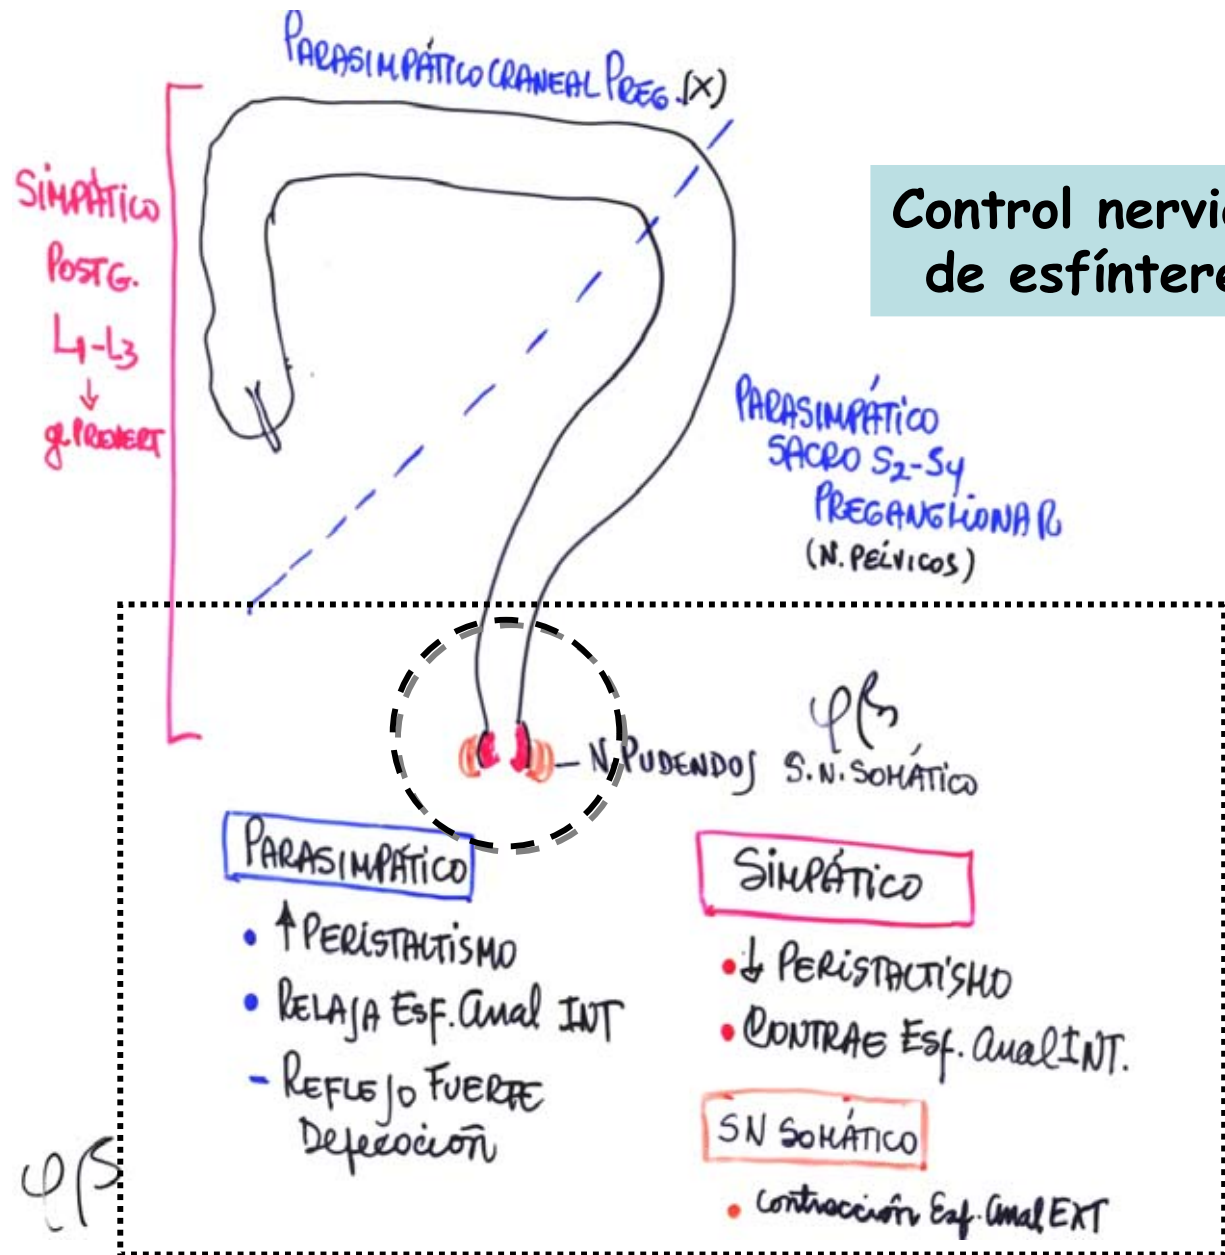 PARASIMPÁTICO CRANEAL PREG. (X)
SIMPÁTICO
POSTG.
L1-L3
↓
g. PREVERT
Control
de
PARASIMPÁTICO
SACRO S2-S4
PREGANGLIONAR
(N. PÉLVICOS)
N. PUDENDOS S.N. SOMÁTICO
PARASIMPÁTICO
• ↑ PERISTALTISMO
• RELAJA ESF. Anal INT
- REFLEJO FUERTE
Defecación
SIMPÁTICO
• ↓ PERISTALTISMO
• CONTRAE Esf. Anal INT.
SN SOMÁTICO
• Contracción Esf. Anal EXT